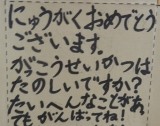 にゅうがくおめでとう
ございます。
がっこうせいかつは
たのしいですか?
たいへんなことがあ
てもがんばってね!